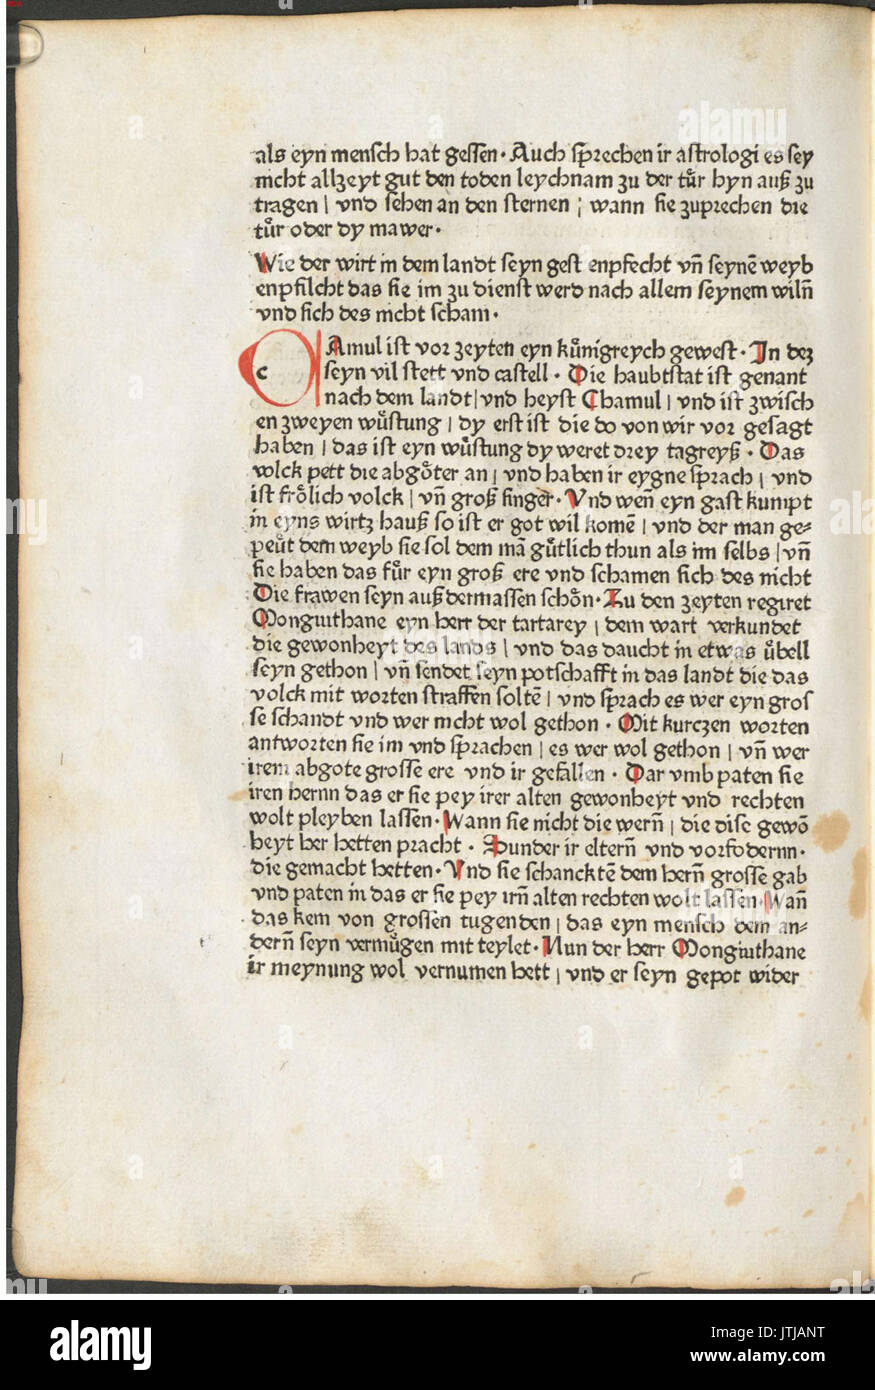 als eyn mensch hat gessen· Auch sprechen ir astrologi es sey
nicht allzeyt gut den toden leychnam zu der tür hyn auß zu
tragen / vnd sehen an den sternen ; wann sie zuprechen die
tür oder dy mawer·
Wie der wirt in dem landt seyn gest enpfecht vn̄ seynē weyb
enpfilcht das sie im zu dienst werd nach allem seynem wiln̄
vnd sich des nicht scham·
c Amul ist vor zeyten eyn künigreych gewest· In dez
seyn vil stett vnd castell· Die haubtstat ist genant
nach dem landt/ vnd heyst Chamul / vnd ist zwisch
en zweyen wüstung / dy erst ist die do von wir vor gesagt
haben / das ist eyn wüstung dy weret drey tagreyß· Das
volck pett die abgöter an / vnd haben ir eygne sprach / vnd
ist frölich volck / vn̄ groß singer· Vnd wen̄ eyn gast kumpt
in eyns wirtz hauß so ist er got wil komē / vnd der man ge⸗
peüt dem weyb sie sol dem mā gütlich thun als im selbs / vn̄
sie haben das für eyn groß ere vnd schamen sich des nicht
Die frawen seyn außdermassen schön· Zu den zeyten regiret
Monguithane eyn herr der tartarey / dem wart verkundet
die gewonheyt des lands / vnd das daucht in etwas übell
seyn gethon / vn̄ sendet seyn potschafft in das landt die das
volck mit worten straffen soltē / vnd sprach es wer eyn gros
se schandt vnd wer nicht wol gethon· Mit kurczen worten
antworten sie im vnd sprachen / es wer wol gethon / vn̄ wer
irem abgote grosse ere vnd ir gefallen· Dar vmb paten sie
iren hernn das er sie pey irer alten gewonheyt vnd rechten
wolt pleyben lassen· Wann sie nicht die wern̄ / die dise gewō
heyt her hetten pracht· Sunder ir eltern̄ vnd vorfodernn·
die gemacht hetten· Vnd sie schancktē dem hern̄ grosse gab
vnd paten in das er sie pey irn̄ alten rechten wolt lassen· Wan̄
das kem von grossen tugenden / das eyn mensch dem an⸗
dern̄ seyn vermügen mit teylet· Nun der herr Monguithane
ir meynung wol vernumen hett / vnd er seyn gepot wider
alamy
alamy
Image ID: JTJANT
www.alamy.com